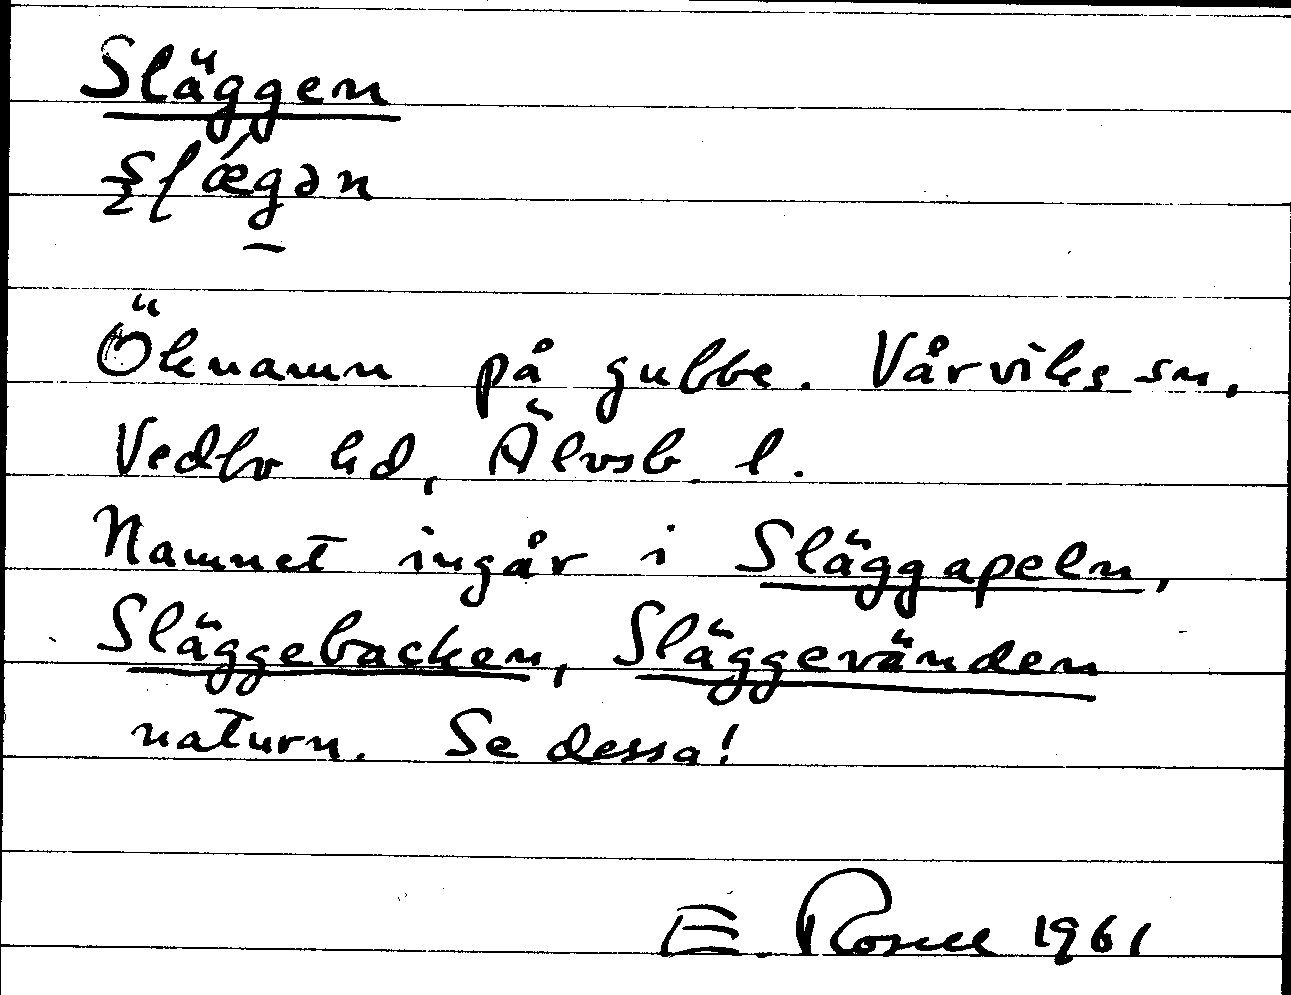 Släggen
slǽgən
Öknamn på gubbe. Vårviks sn,
Vedbo hd, Älvsb. l.
Namnet ingår i Släggapeln,
Släggebacken, Släggevänden
naturn. Se dessa!
E. Rosell 1961